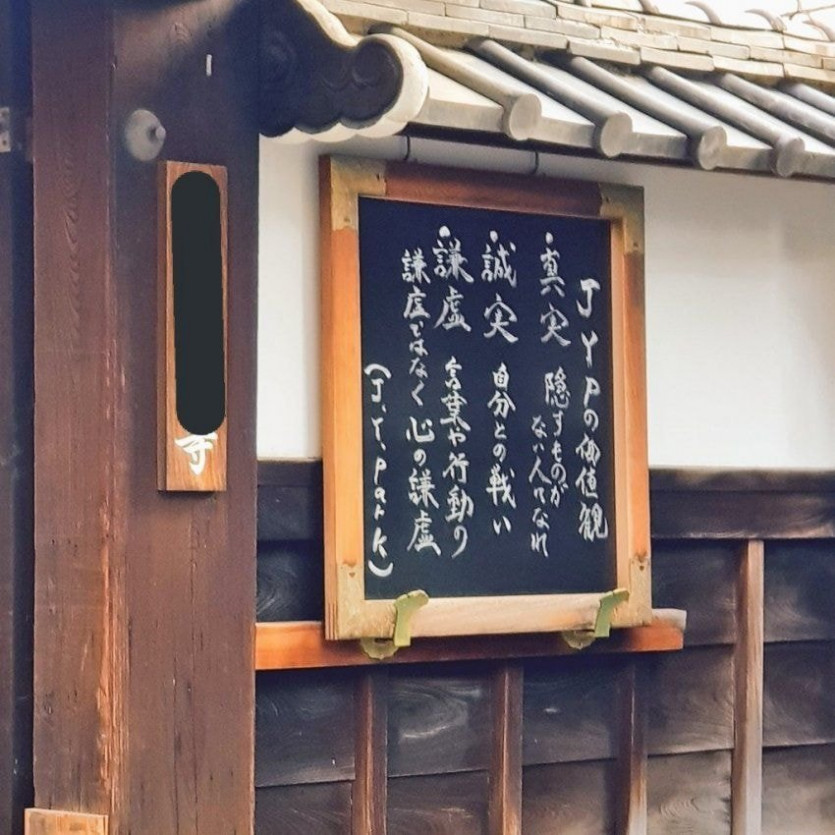 JYPの価値観
・真実 隠すものが
ない人になれ
・誠実 自分との戦い
・謙虚 言葉や行動の
謙虚ではなく心の謙虚
(J.Y.Park)
寺